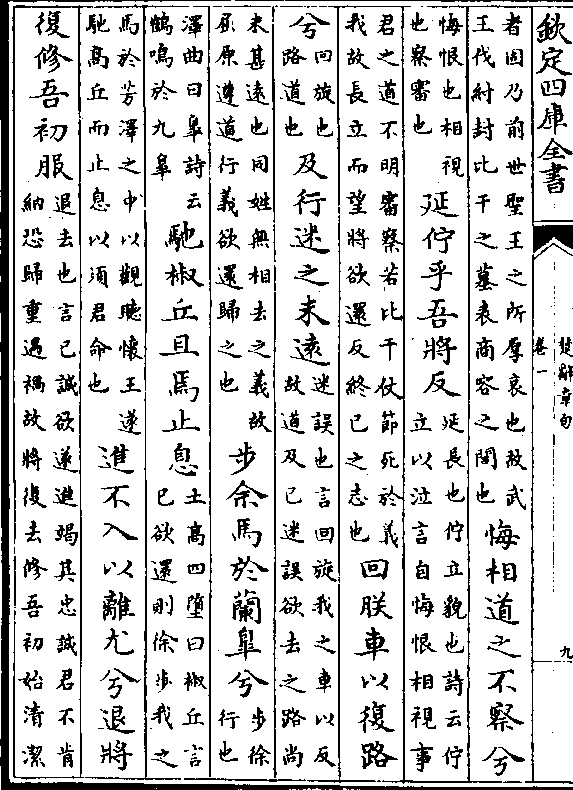 欽定四庫全書
楚辭章句
卷一
九
者固乃前世聖王之所厚哀也故武
王伐紂封比干之墓表商容之閭也
悔相道之不察兮
悔恨也相視
也察審也
延佇乎吾將反
延長也佇立貌也詩云佇
立以泣言自悔恨相視事
君之道不明審察若比干仗節死於義
我故長立而望將欲還反終己之志也
回朕車以復路
兮
回旋也
路道也
及行迷之未遠
迷誤也言回旋我之車以反
故道及已迷誤欲去之路尚
未甚遠也同姓無相去之義故
屈原遵道行義欲還歸之也
步余馬於蘭皐兮
步徐
行也
澤曲曰皐詩云
鶴鳴於九皐
馳椒丘且焉止息
土高四墮曰椒丘言
已欲還則徐步我之
馬於芳澤之中以觀聽懷王遂
馳高丘而止息以須君命也
進不入以離尤兮退將
復修吾初服
退去也言已誠欲遂進竭其忠誠君不肯
納恐歸重遇禍故將復去修吾初始清潔